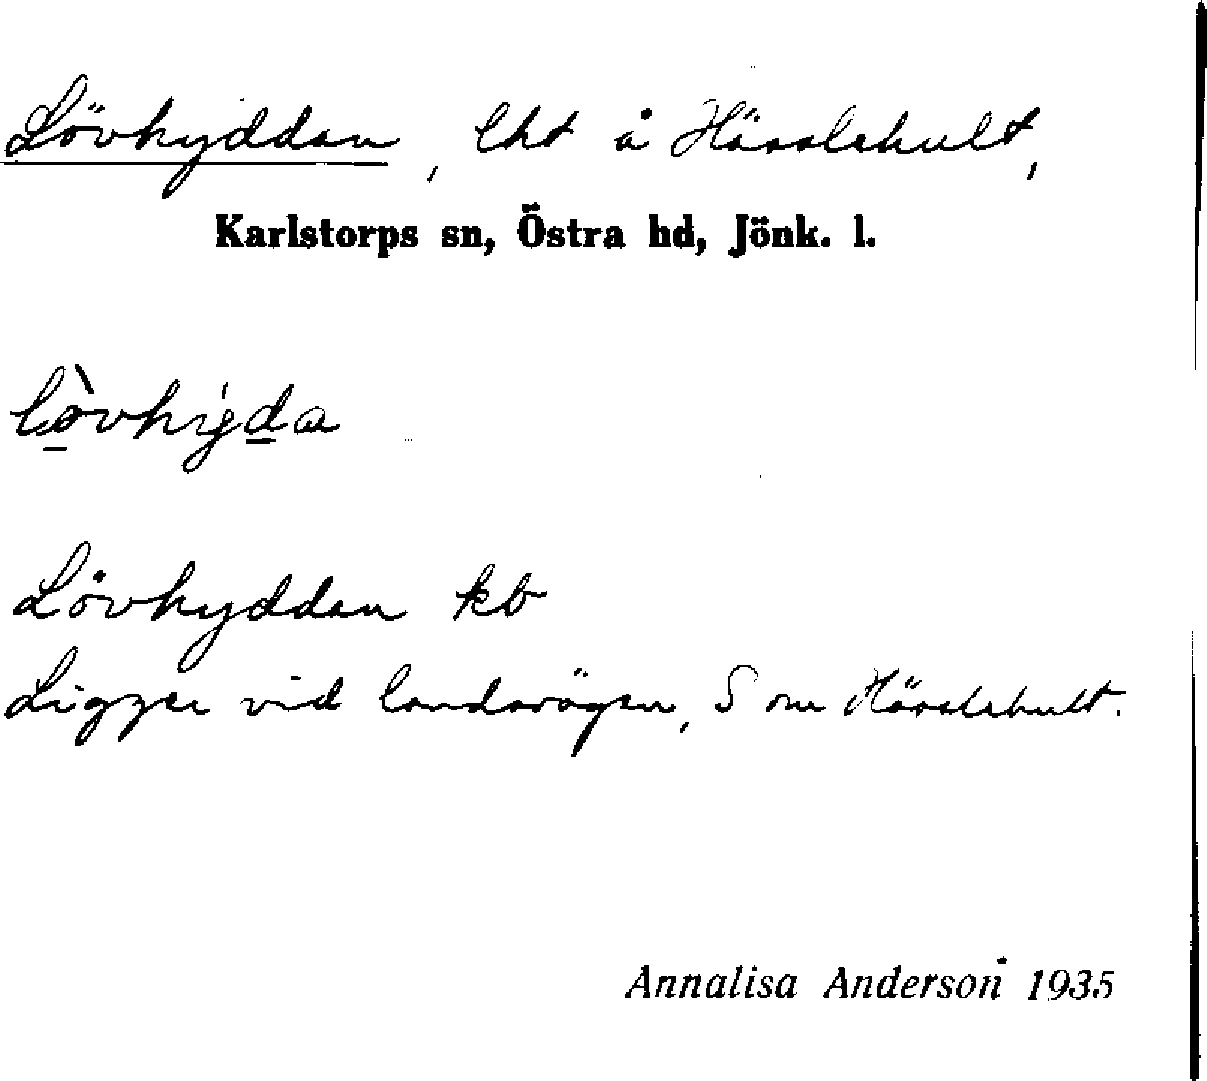 Lövhyddan, lht å Hässlehult,
Karlstorps sn, Östra hd, Jönk. l.
Lövhyddan kb
Ligger vid landsvägen, S om Hässlehult.
Annalisa Anderson 1935